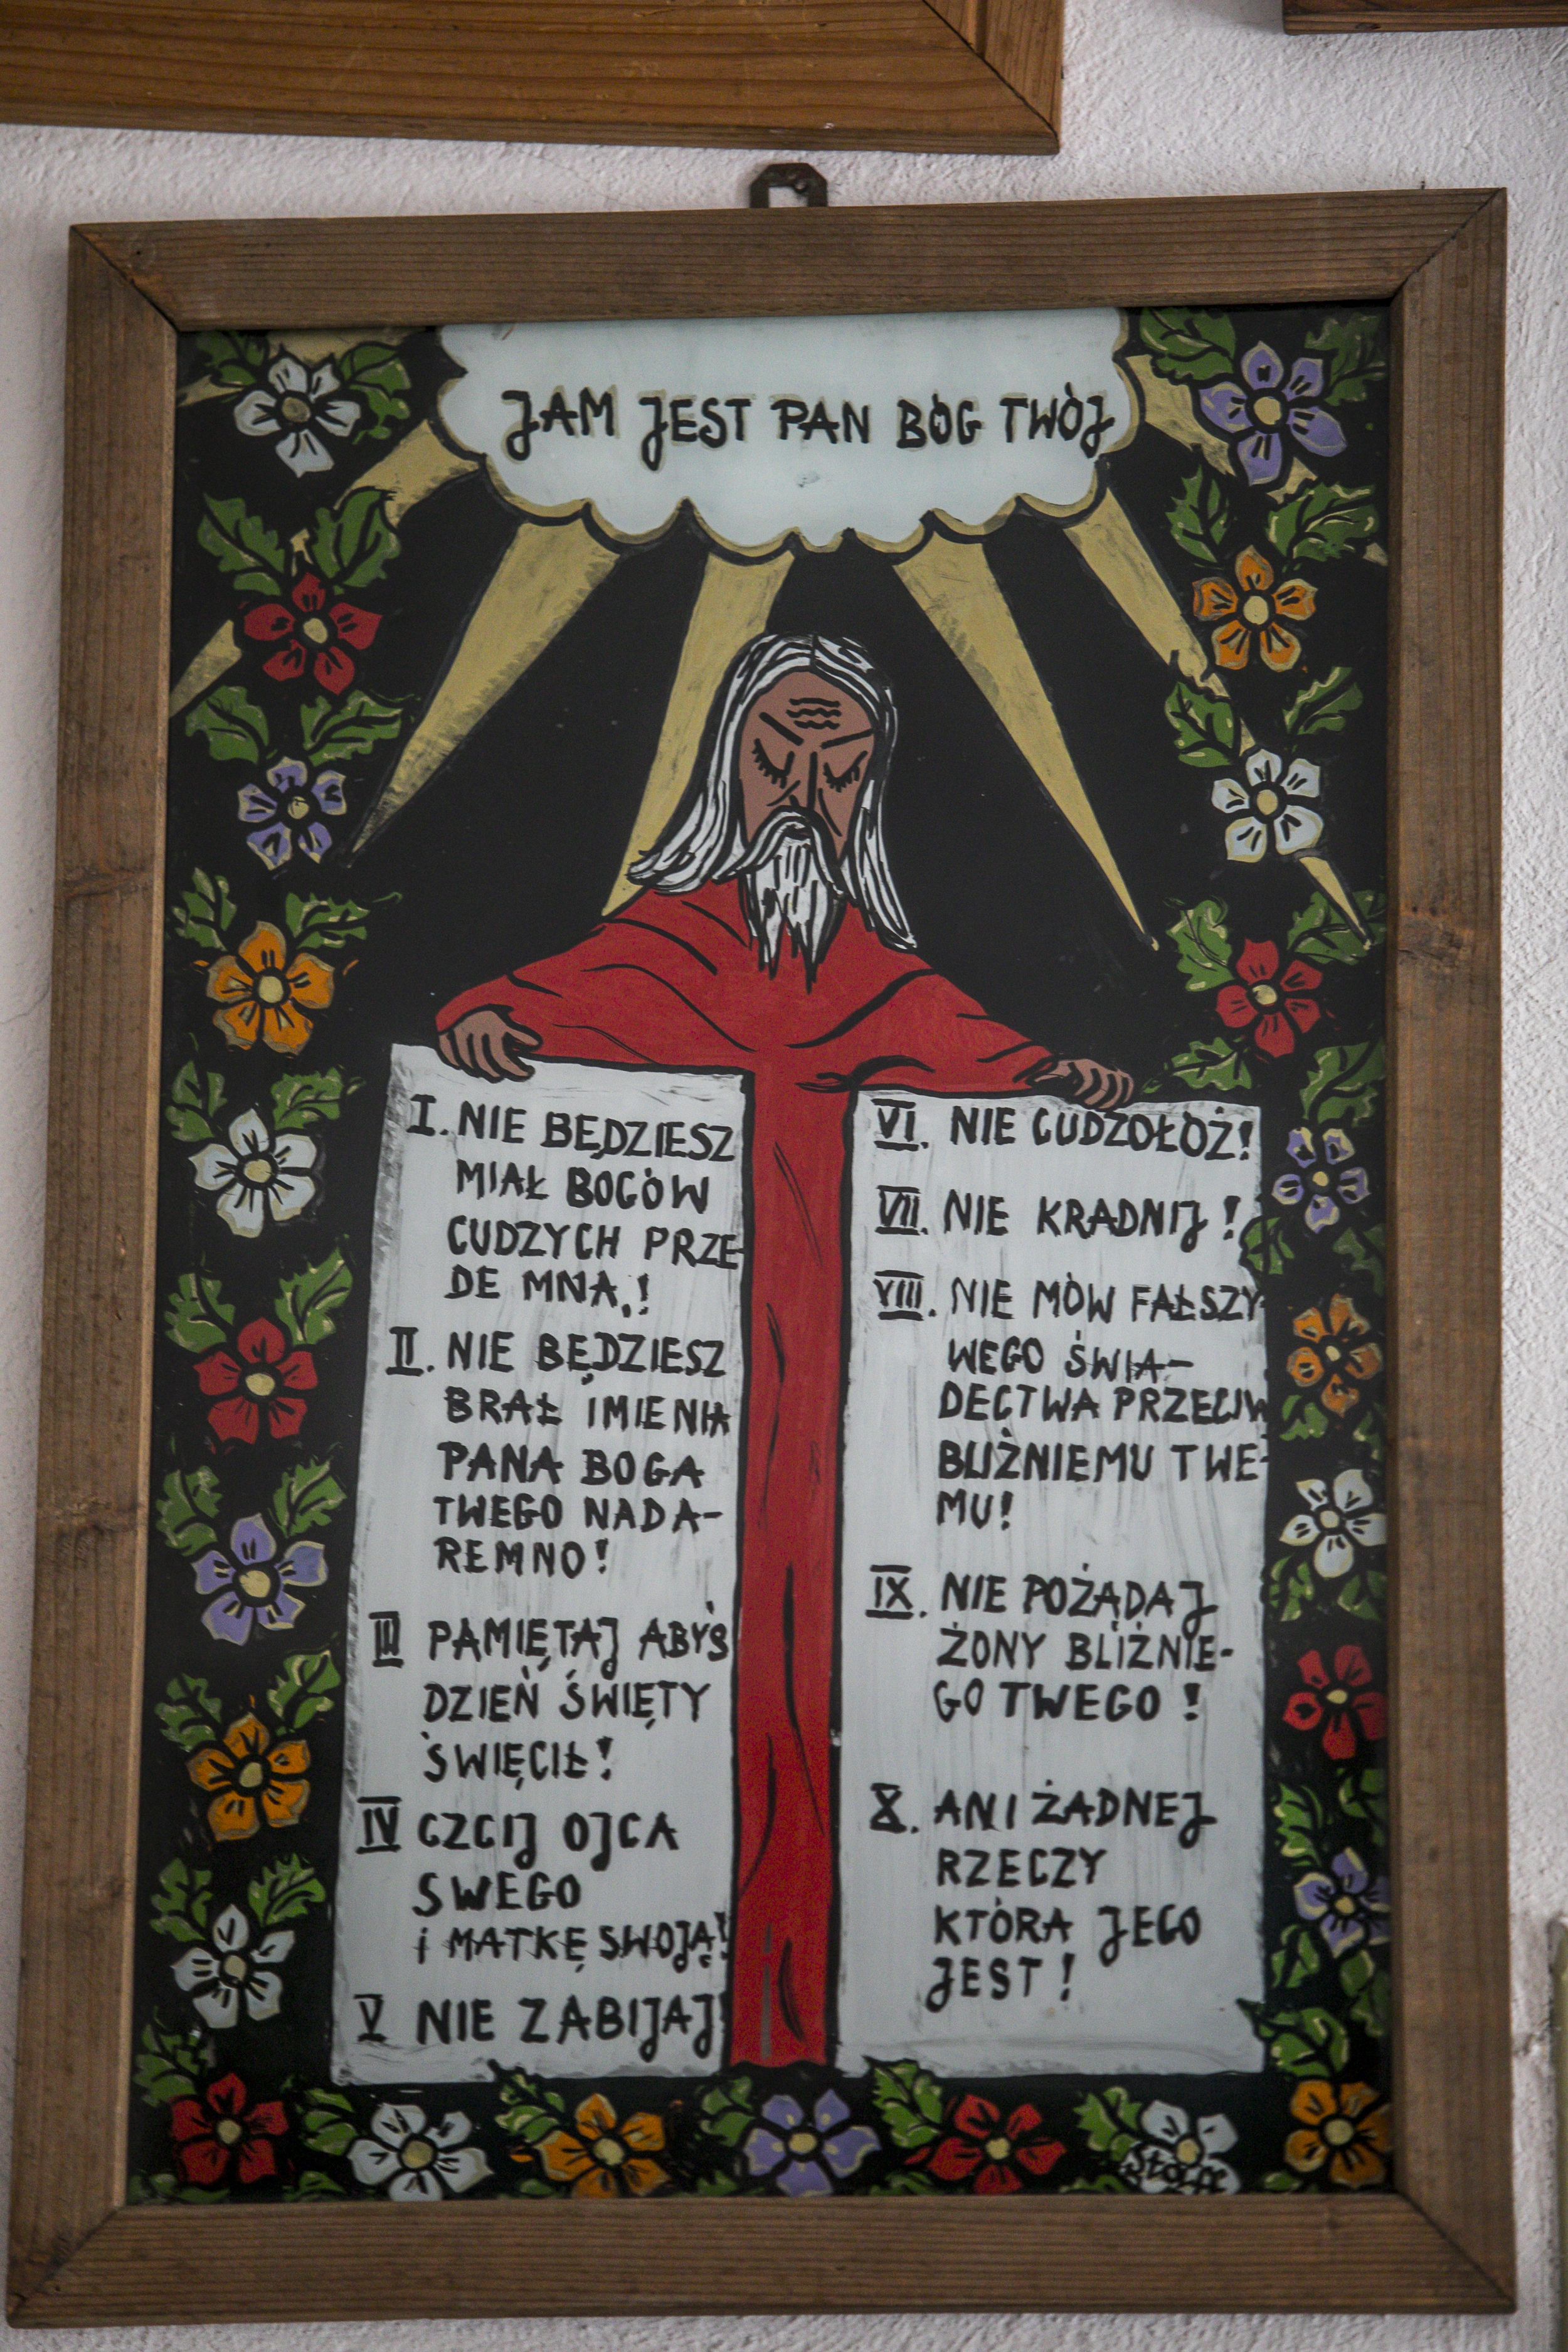 JAM JEST PAN BÓG TWÓJ
I. NIE BĘDZIESZ
MIAŁ BOGÓW
CUDZYCH PRZE-
DE MNĄ!
II. NIE BĘDZIESZ
BRAŁ IMIENIA
PANA BOGA
TWEGO NADA-
REMNO!
III PAMIĘTAJ ABYŚ
DZIEŃ ŚWIĘTY
ŚWIĘCIŁ!
IV CZCIJ OJCA
SWEGO
i MATKĘ SWOJĄ!
V NIE ZABIJAJ!
VI. NIE CUDZOŁÓŻ!
VII. NIE KRADNIJ!
VIII. NIE MÓW FAŁSZY-
WEGO ŚWIA-
DECTWA PRZECIW
BLIŹNIEMU TWE-
MU!
IX. NIE POŻĄDAJ
ŻONY BLIŹNIE-
GO TWEGO!
X. ANI ŻADNEJ
RZECZY
KTÓRA JEGO
JEST!